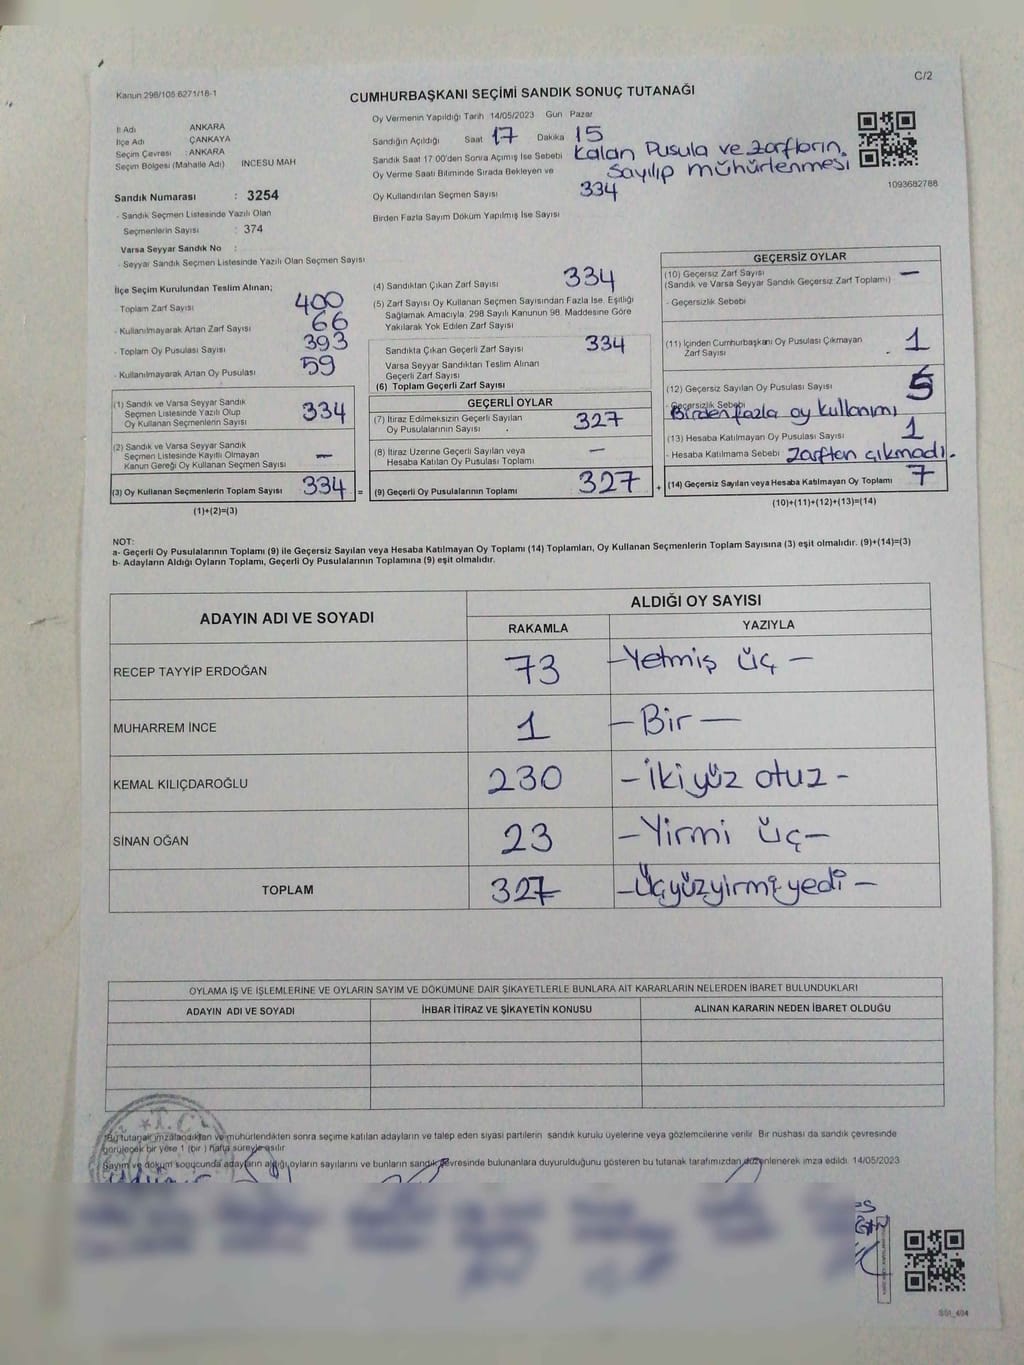 C/2
Kanun 298/105 6271/18-1
CUMHURBAŞKANI SEÇİMİ SANDIK SONUÇ TUTANAĞI
İl Adı ANKARA
İlçe Adı ÇANKAYA
Seçim Çevresi : ANKARA
Seçim Bölgesi (Mahalle Adı) İNCESU MAH
Sandık Numarası : 3254
- Sandık Seçmen Listesinde Yazılı Olan
Seçmenlerin Sayısı : 374
Varsa Seyyar Sandık No :
- Seyyar Sandık Seçmen Listesinde Yazılı Olan Seçmen Sayısı
Oy Vermenin Yapıldığı Tarih 14/05/2023 Gün Pazar
Sandığın Açıldığı Saat 17 Dakika 15
Sandık Saat 17 00'den Sonra Açımış İse Sebebi Kalan Pusula ve zarfların
Oy Verme Saati Bitiminde Sırada Bekleyen ve Sayılıp mühürlenmesi
Oy Kullandırılan Seçmen Sayısı 334
Birden Fazla Sayım Döküm Yapılmış İse Sayısı
1093682788
İlçe Seçim Kurulundan Teslim Alınan;
Toplam Zarf Sayısı 400
- Kullanılmayarak Artan Zarf Sayısı 66
- Toplam Oy Pusulası Sayısı 393
- Kullanılmayarak Artan Oy Pusulası 59
(1) Sandık ve Varsa Seyyar Sandık
Seçmen Listesinde Yazılı Olup
Oy Kullanan Seçmenlerin Sayısı 334
(2) Sandık ve Varsa Seyyar Sandık
Seçmen Listesinde Kayıtlı Olmayan
Kanun Gereği Oy Kullanan Seçmen Sayısı —
(3) Oy Kullanan Seçmenlerin Toplam Sayısı 334 =
(1)+(2)=(3)
(4) Sandıktan Çıkan Zarf Sayısı 334
(5) Zarf Sayısı Oy Kullanan Seçmen Sayısından Fazla İse, Eşitliği
Sağlamak Amacıyla, 298 Sayılı Kanunun 98. Maddesine Göre
Yakılarak Yok Edilen Zarf Sayısı
Sandıkta Çıkan Geçerli Zarf Sayısı 334
Varsa Seyyar Sandıktan Teslim Alınan
Geçerli Zarf Sayısı
(6) Toplam Geçerli Zarf Sayısı
GEÇERLİ OYLAR
(7) İtiraz Edilmeksizin Geçerli Sayılan
Oy Pusulalarının Sayısı 327
(8) İtiraz Üzerine Geçerli Sayılan veya
Hesaba Katılan Oy Pusulası Toplamı —
(9) Geçerli Oy Pusulalarının Toplamı : 327 +
GEÇERSİZ OYLAR
(10) Geçersiz Zarf Sayısı —
(Sandık ve Varsa Seyyar Sandık Geçersiz Zarf Toplamı)
- Geçersizlik Sebebi
(11) İçinden Cumhurbaşkanı Oy Pusulası Çıkmayan
Zarf Sayısı 1
(12) Geçersiz Sayılan Oy Pusulası Sayısı 5
- Geçersizlik Sebebi Birden fazla oy kullanımı
(13) Hesaba Katılmayan Oy Pusulası Sayısı 1
- Hesaba Katılmama Sebebi zarftan çıkmadı.
(14) Geçersiz Sayılan veya Hesaba Katılmayan Oy Toplamı 7
(10)+(11)+(12)+(13)=(14)
NOT:
a- Geçerli Oy Pusulalarının Toplamı (9) ile Geçersiz Sayılan veya Hesaba Katılmayan Oy Toplamı (14) Toplamları, Oy Kullanan Seçmenlerin Toplam Sayısına (3) eşit olmalıdır. (9)+(14)=(3)
b- Adayların Aldığı Oyların Toplamı, Geçerli Oy Pusulalarının Toplamına (9) eşit olmalıdır.
ADAYIN ADI VE SOYADI ALDIĞI OY SAYISI
RAKAMLA YAZIYLA
RECEP TAYYİP ERDOĞAN 73 —Yetmiş üç—
MUHARREM İNCE 1 —Bir—
KEMAL KILIÇDAROĞLU 230 —İkiyüz otuz-
SİNAN OĞAN 23 —Yirmi üç—
TOPLAM 327 —Üçyüzyirmi yedi—
OYLAMA İŞ VE İŞLEMLERİNE VE OYLARIN SAYIM VE DÖKÜMÜNE DAİR ŞİKAYETLERLE BUNLARA AİT KARARLARIN NELERDEN İBARET BULUNDUKLARI
ADAYIN ADI VE SOYADI İHBAR İTİRAZ VE ŞİKAYETİN KONUSU ALINAN KARARIN NEDEN İBARET OLDUĞU
T.C.
Bu tutanak imzalandıktan ve mühürlendikten sonra seçime katılan adayların ve talep eden siyasi partilerin sandık kurulu üyelerine veya gözlemcilerine verilir. Bir nüshası da sandık çevresinde
görülecek bir yere 1 (bir ) hafta süreyle asılır
Sayım ve döküm sonucunda adayların aldığı oyların sayılarını ve bunların sandık çevresinde bulunanlara duyurulduğunu gösteren bu tutanak tarafımızdan düzenlenerek imza edildi. 14/05/2023